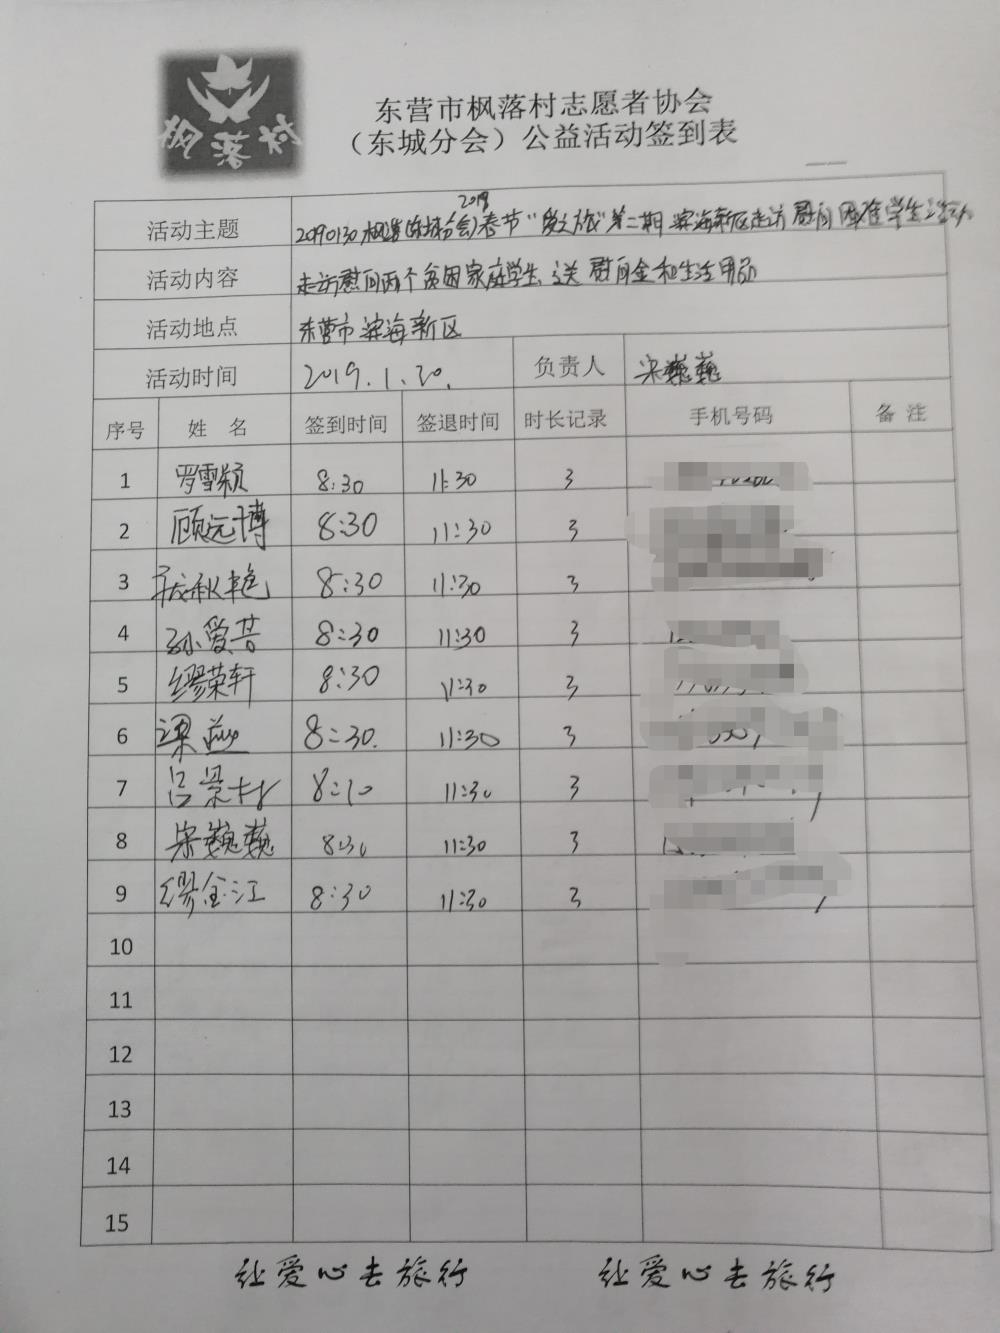 枫落村
东营市枫落村志愿者协会
（东城分会）公益活动签到表
2019
活动主题 20190130枫落村(东城分会)春节“爱之旅”第二期 滨海新区走访慰问困难学生活动
活动内容 走访慰问两个贫困家庭学生 送慰问金和生活用品
活动地点 东营市滨海新区
活动时间 2019.1.30. 负责人 宋巍巍
序号 姓 名 签到时间 签退时间 时长记录 手机号码 备 注
1 罗雪颖 8:30 11:30 3
2 顾远博 8:30 11:30 3
3 秋艳 8:30 11:30 3
4 孙爱苦 8:30 11:30 3
5 缪荣轩 8:30 11:30 3
6 梁 8:30. 11:30 3
7 吕景村 8:30 11:30 3
8 宋巍巍 8:30 11:30 3
9 缪金江 8:30 11:30 3
10
11
12
13
14
15
让爱心去旅行 让爱心去旅行